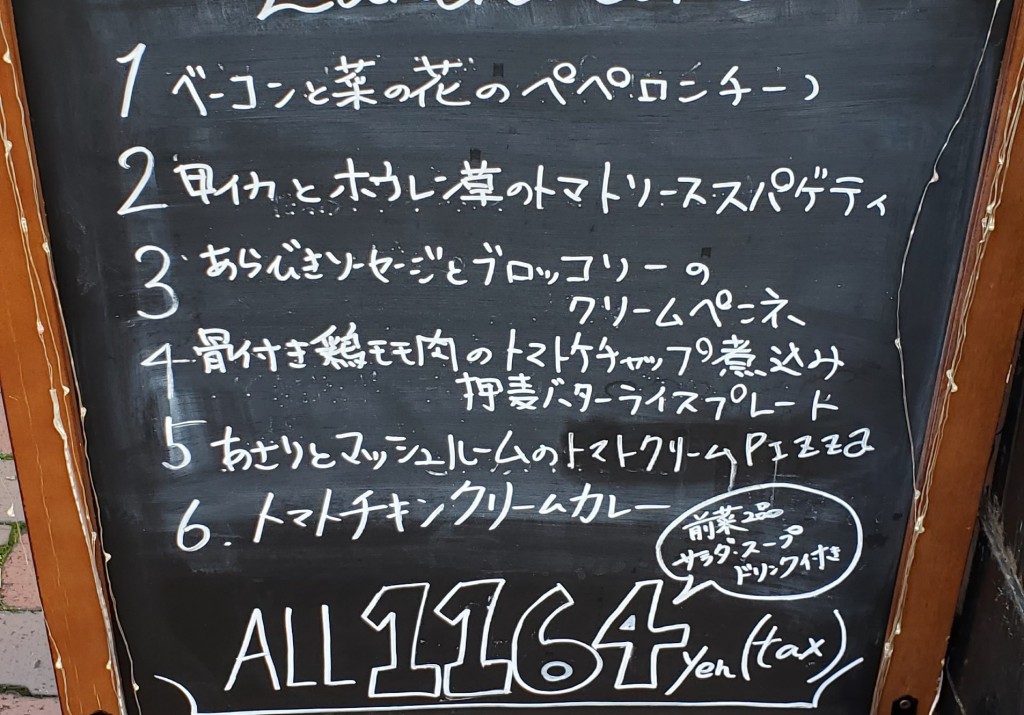 1 ベーコンと菜の花のペペロンチーノ
2 甲イカとホウレン草のトマトソーススパゲティ
3 あらびきソーセージとブロッコリーの
クリームペンネ
4 骨付き鶏モモ肉のトマトケチャップ煮込み
押麦バターライスプレード
5 あさりとマッシュルームのトマトクリームPIZZa
6. トマトチキンクリームカレー
前菜2品
サラダ・スープ
ドリンク付き
ALL 1164 yen (tax)